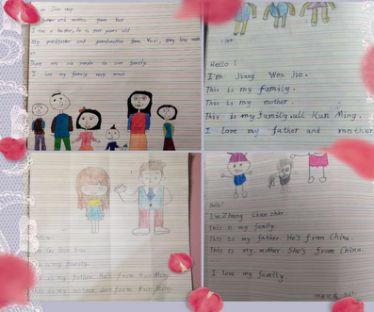 I have a brother, he is five years old
My grandfather and grandmother from
There are six people in our family
I love my family very much
Hello!
I'm Jiang Wen Jie.
This is my family.
This is my mother.
This is my family, all Kun Ming.
I love my father and mother
This is my family.
This is my father. He's from Kun Ming.
This is my mother. She's from Kun Ming.
Hello!
I'm Zhang Chao zhan
This is my family.
This is my father. He's from China.
This is my mother. She's from China.
I love my family